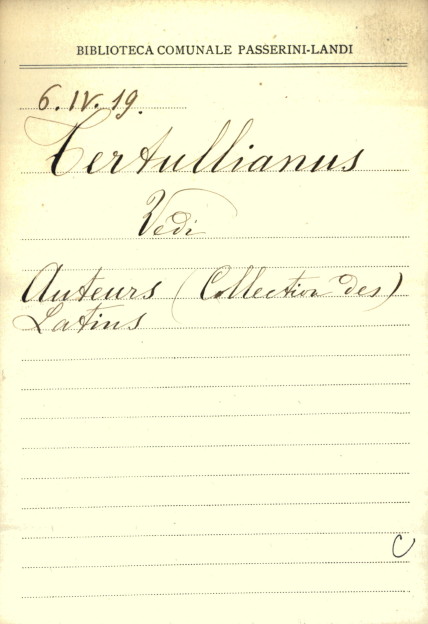 BIBLIOTECA COMUNALE PASSERINI-LANDI
6.IV.19.
Tertullianus
Vedi
Auteurs (Collection des)
Latins
C